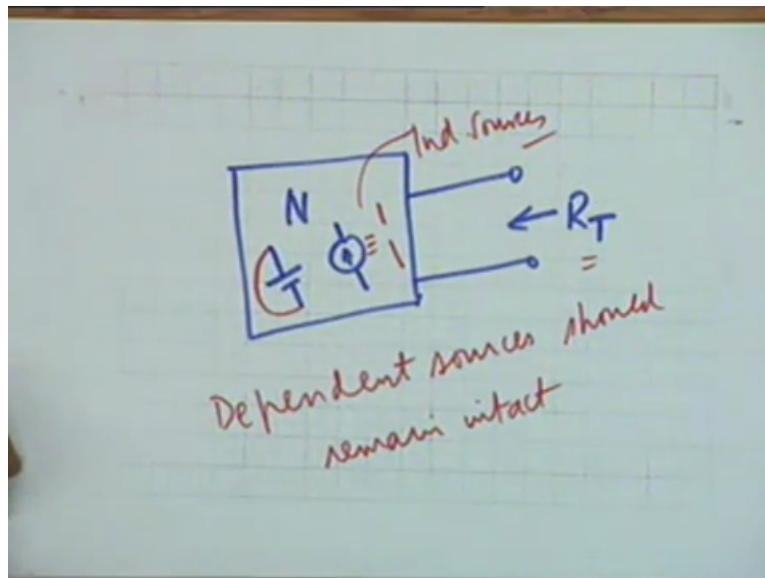 Ind sources
N
R_T
Dependent sources should
remain intact